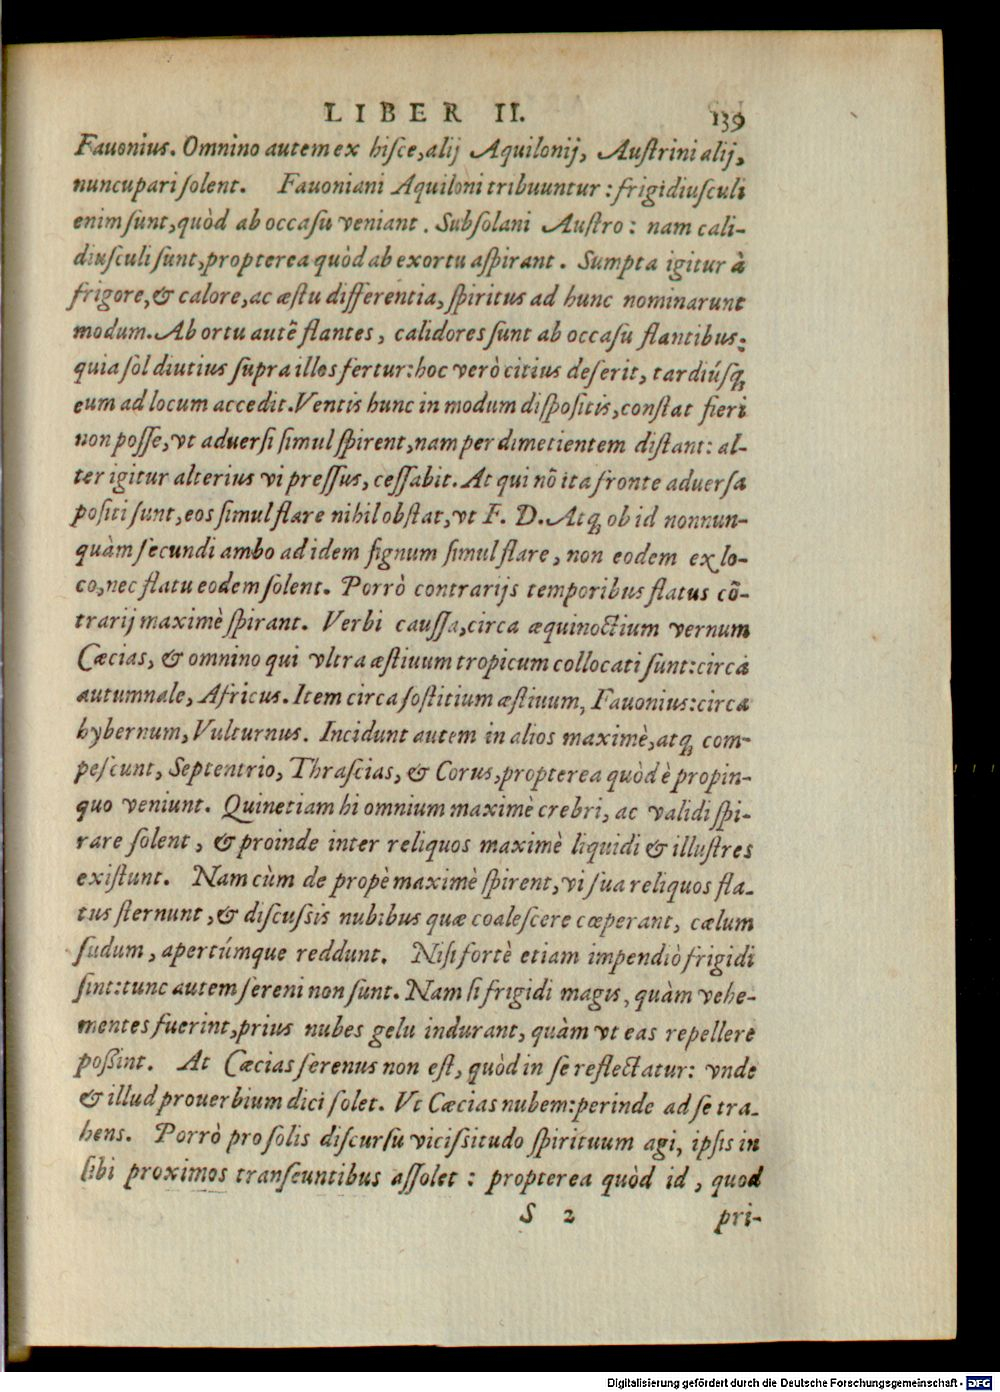 LIBER II. 139
Fauonius. Omnino autem ex hisce, alij Aquilonij, Austrini alij,
nuncupari solent. Fauoniani Aquiloni tribuuntur: frigidiusculi
enim sunt, quòd ab occasu veniant. Subsolani Austro: nam cali-
diusculi sunt, propterea quòd ab exortu aspirant. Sumpta igitur à
frigore, & calore, ac æstu differentia, spiritus ad hunc nominarunt
modum. Ab ortu autē flantes, calidores sunt ab occasu flantibus:
quia sol diutius supra illos fertur: hoc verò citius deserit, tardiúsq;
eum ad locum accedit. Ventis hunc in modum dispositis, constat fieri
non posse, vt aduersi simul spirent, nam per dimetientem distant: al-
ter igitur alterius vi pressus, cessabit. At qui nō ita fronte aduersa
positi sunt, eos simul flare nihil obstat, vt F. D. Atq; ob id nonnun-
quàm secundi ambo ad idem signum simul flare, non eodem ex lo-
co, nec flatu eodem solent. Porrò contrarijs temporibus flatus cō-
trarij maximè spirant. Verbi caussa, circa æquinoctium vernum
Cæcias, & omnino qui vltra æstiuum tropicum collocati sunt: circa
autumnale, Africus. Item circa sostitium æstiuum, Fauonius: circa
hybernum, Vulturnus. Incidunt autem in alios maximè, atq; com-
pescunt, Septentrio, Thrascias, & Corus, propterea quòd è propin-
quo veniunt. Quinetiam hi omnium maximè crebri, ac validi spi-
rare solent, & proinde inter reliquos maximè liquidi & illustres
existunt. Nam cùm de propè maximè spirent, vi sua reliquos fla-
tus sternunt, & discussis nubibus quæ coalescere cœperant, cælum
sudum, apertúmque reddunt. Nisi fortè etiam impendiò frigidi
sint: tunc autem sereni non sunt. Nam si frigidi magis, quàm vehe-
mentes fuerint, prius nubes gelu indurant, quàm vt eas repellere
possint. At Cæcias serenus non est, quòd in se reflectatur: vnde
& illud prouerbium dici solet. Vt Cæcias nubem: perinde ad se tra-
hens. Porrò pro solis discursu vicissitudo spirituum agi, ipsis in
sibi proximos transeuntibus assolet: propterea quòd id, quod
S 2 pri-
Digitalisierung gefördert durch die Deutsche Forschungsgemeinschaft - DFG